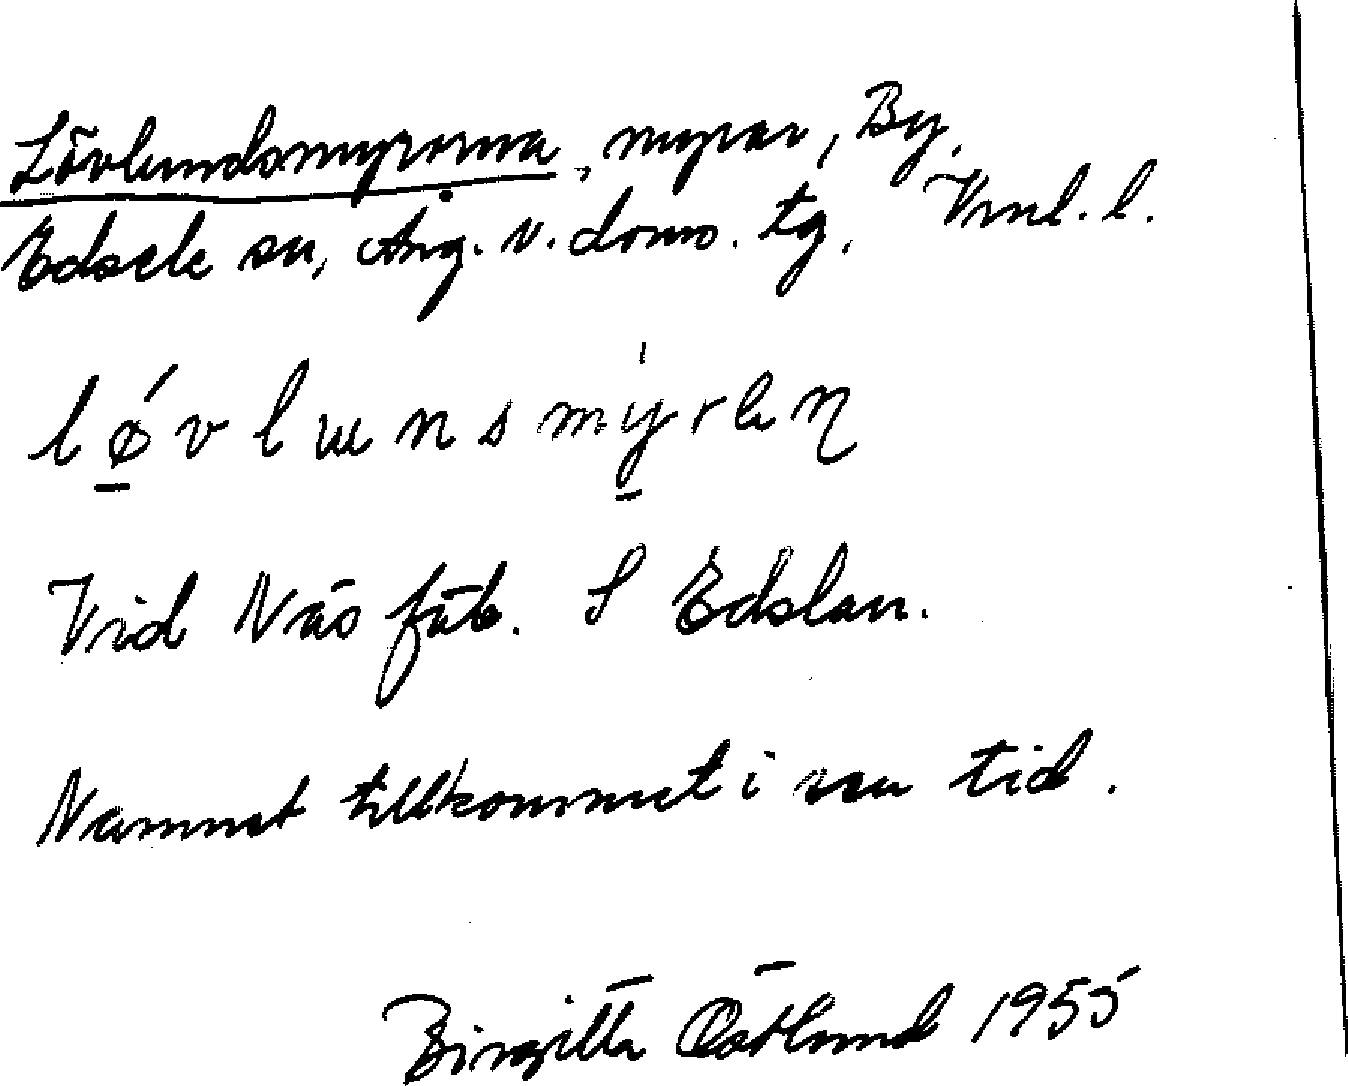 Lövlundsmyrorna, myrar, By,
Edsele sn, Ång. v. doms. tg, Vml. l.
løvlɯnsmyrɐɳ
Vid Näs fäb. S Edslan.
Namnet tillkommet i sen tid.
Birgitta Östlund 1955